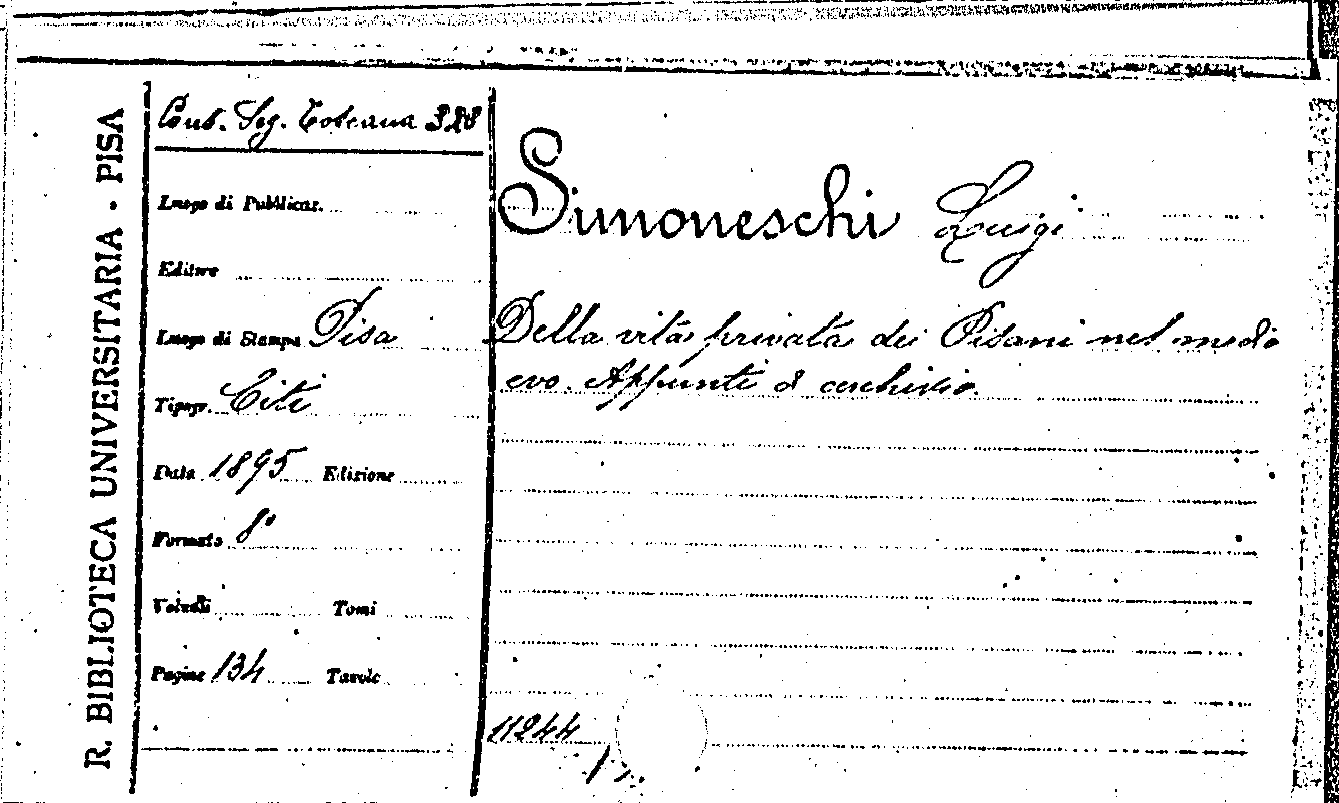 R. BIBLIOTECA UNIVERSITARIA - PISA
Leg. Toscana 328
Luogo di Pubblicaz.
Editore
Luogo di Stampa Pisa
Tipogr. Citi
Data 1895 Edizione
Formato 8°
Volumi Tomi
Pagine 134 Tavole
Simoneschi Luigi
Della vita privata dei Pisani nel medio
evo. Appunti d'archivio.
11244